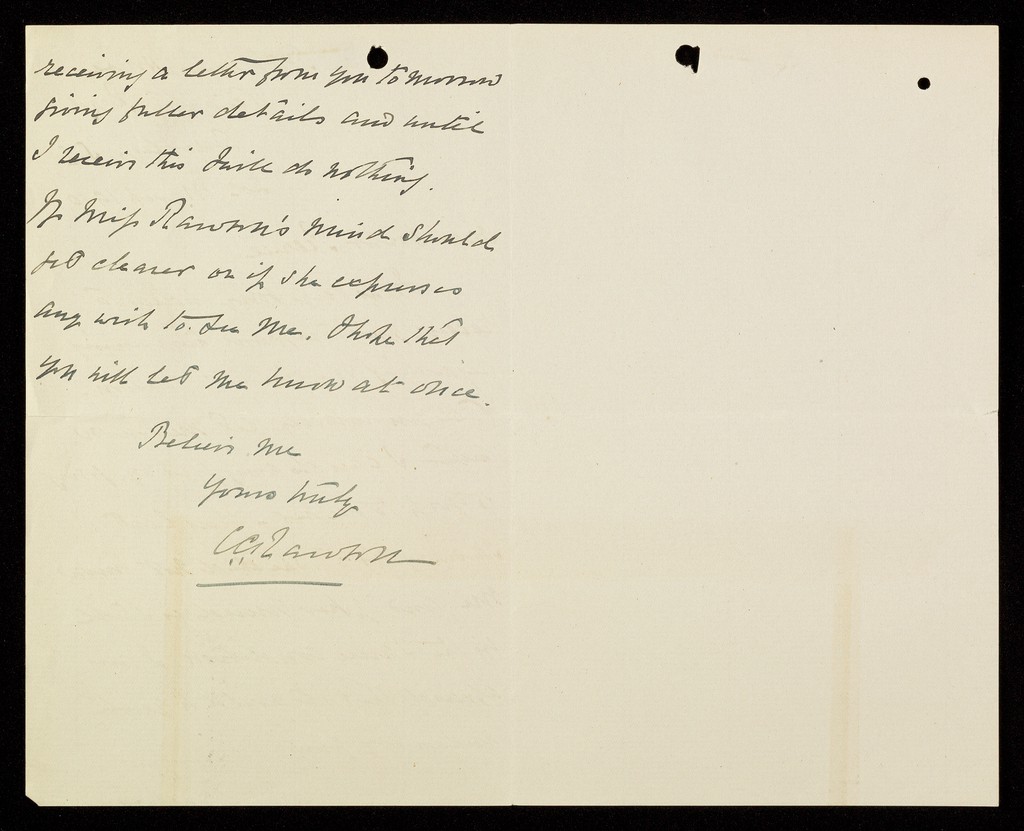 receiving a letter from you tomorrow
giving fuller details and until
I receive this I will do nothing.
If Miss Rawson's mind should
get clearer or if she expresses
any wish to see me, I hope that
you will let me know at once.
Believe me
Yours truly
Rawson